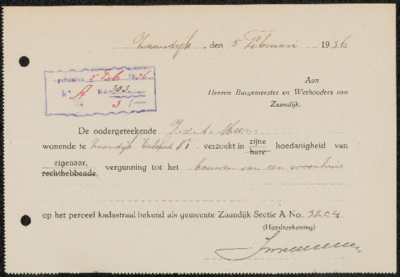 Zaandijk, den 5 Februari 1936
Aan
Heeren Burgemeester en Wethouders van
Zaandijk.
5 Feb 1936
No. A 302
3
De ondergeteekende J. v. d. Meer
wonende te Zaandijk verzoekt in zijne hare hoedanigheid van
eigenaar, rechthebbende, vergunning tot het bouwen van een woonhuis
op het perceel kadastraal bekend als gemeente Zaandijk Sectie A No. 3204
(Handteekening)